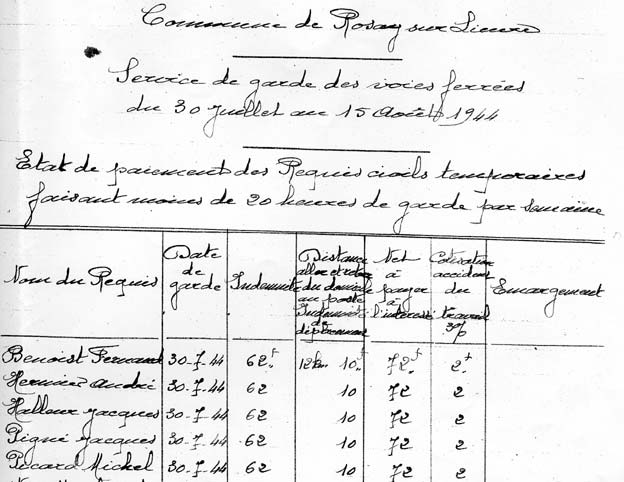 Commune de Rosay sur Lieure
Service de garde des voies ferrées
du 30 Juillet au 15 Août 1944
Etat de paiement des Requis civils temporaires
faisant moins de 20 heures de garde par semaine
Nom du Requis
Date de garde
Indemnité
Distance aller et retour du domicile au poste Indemnité de
Net à payer à l'intéressé
Cotisation accident du travail 3%
Emargement
Benoist Fernand 30-7-44 62f 12km 10 72f 2f
André 30-7-44 62 10 72 2
Jacques 30-7-44 62 10 72 2
Pigné Jacques 30-7-44 62 10 72 2
Picard Michel 30-7-44 62 10 72 2